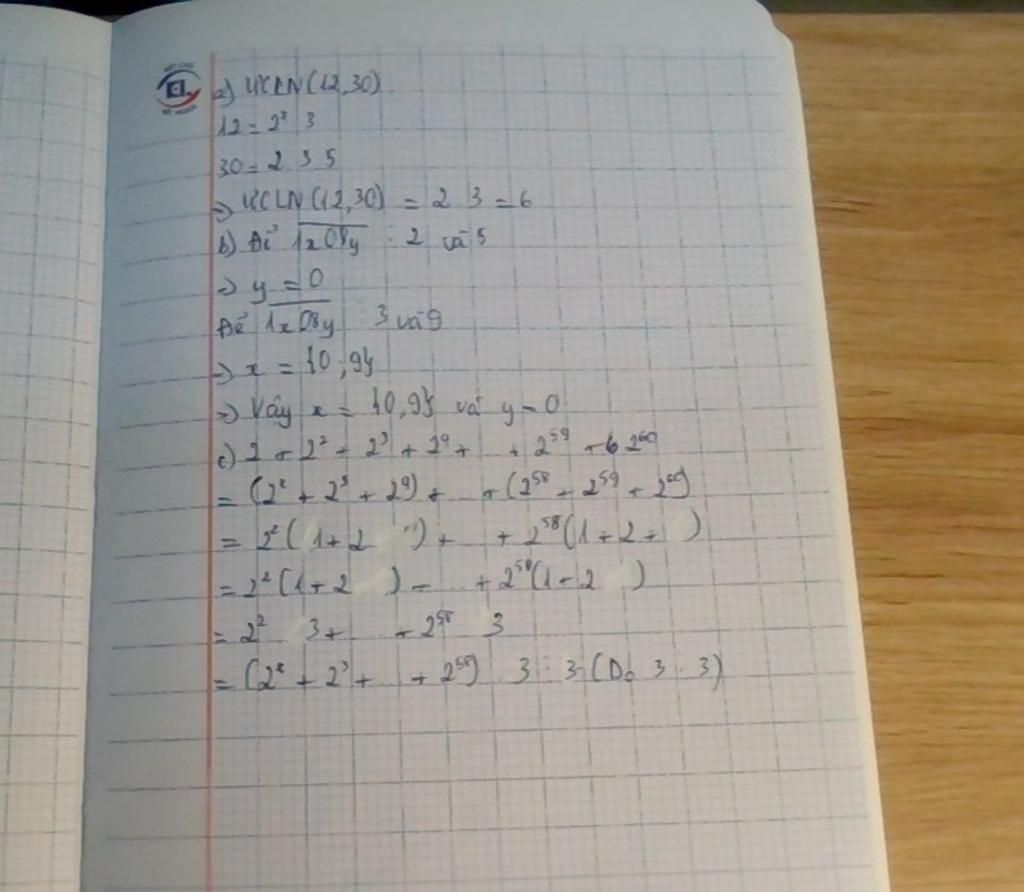 a) ƯCLN(12,30)
12 = 2² 3
30 = 2 3 5
=> ƯCLN(12,30) = 2 3 = 6
b) Để 1x08y : 2 và 5
=> y = 0
Để 1x08y 3 và 9
=> x = {0;9}
=> Vậy x = {0,9} và y = 0
c) 2 + 2² + 2³ + 2⁴ + + 2⁵⁹ + 2⁶⁰
= (2² + 2³ + 2⁴) + ... + (2⁵⁸ + 2⁵⁹ + 2⁶⁰)
= 2² ( 1 + 2 ) + + 2⁵⁸ (1 + 2 + )
= 2² (1 + 2 ) + ... + 2⁵⁸ (1 + 2 )
= 2² 3 + + 2⁵⁸ 3
= (2² + 2³ + + 2⁵⁸) 3 : 3 (Do 3 : 3)